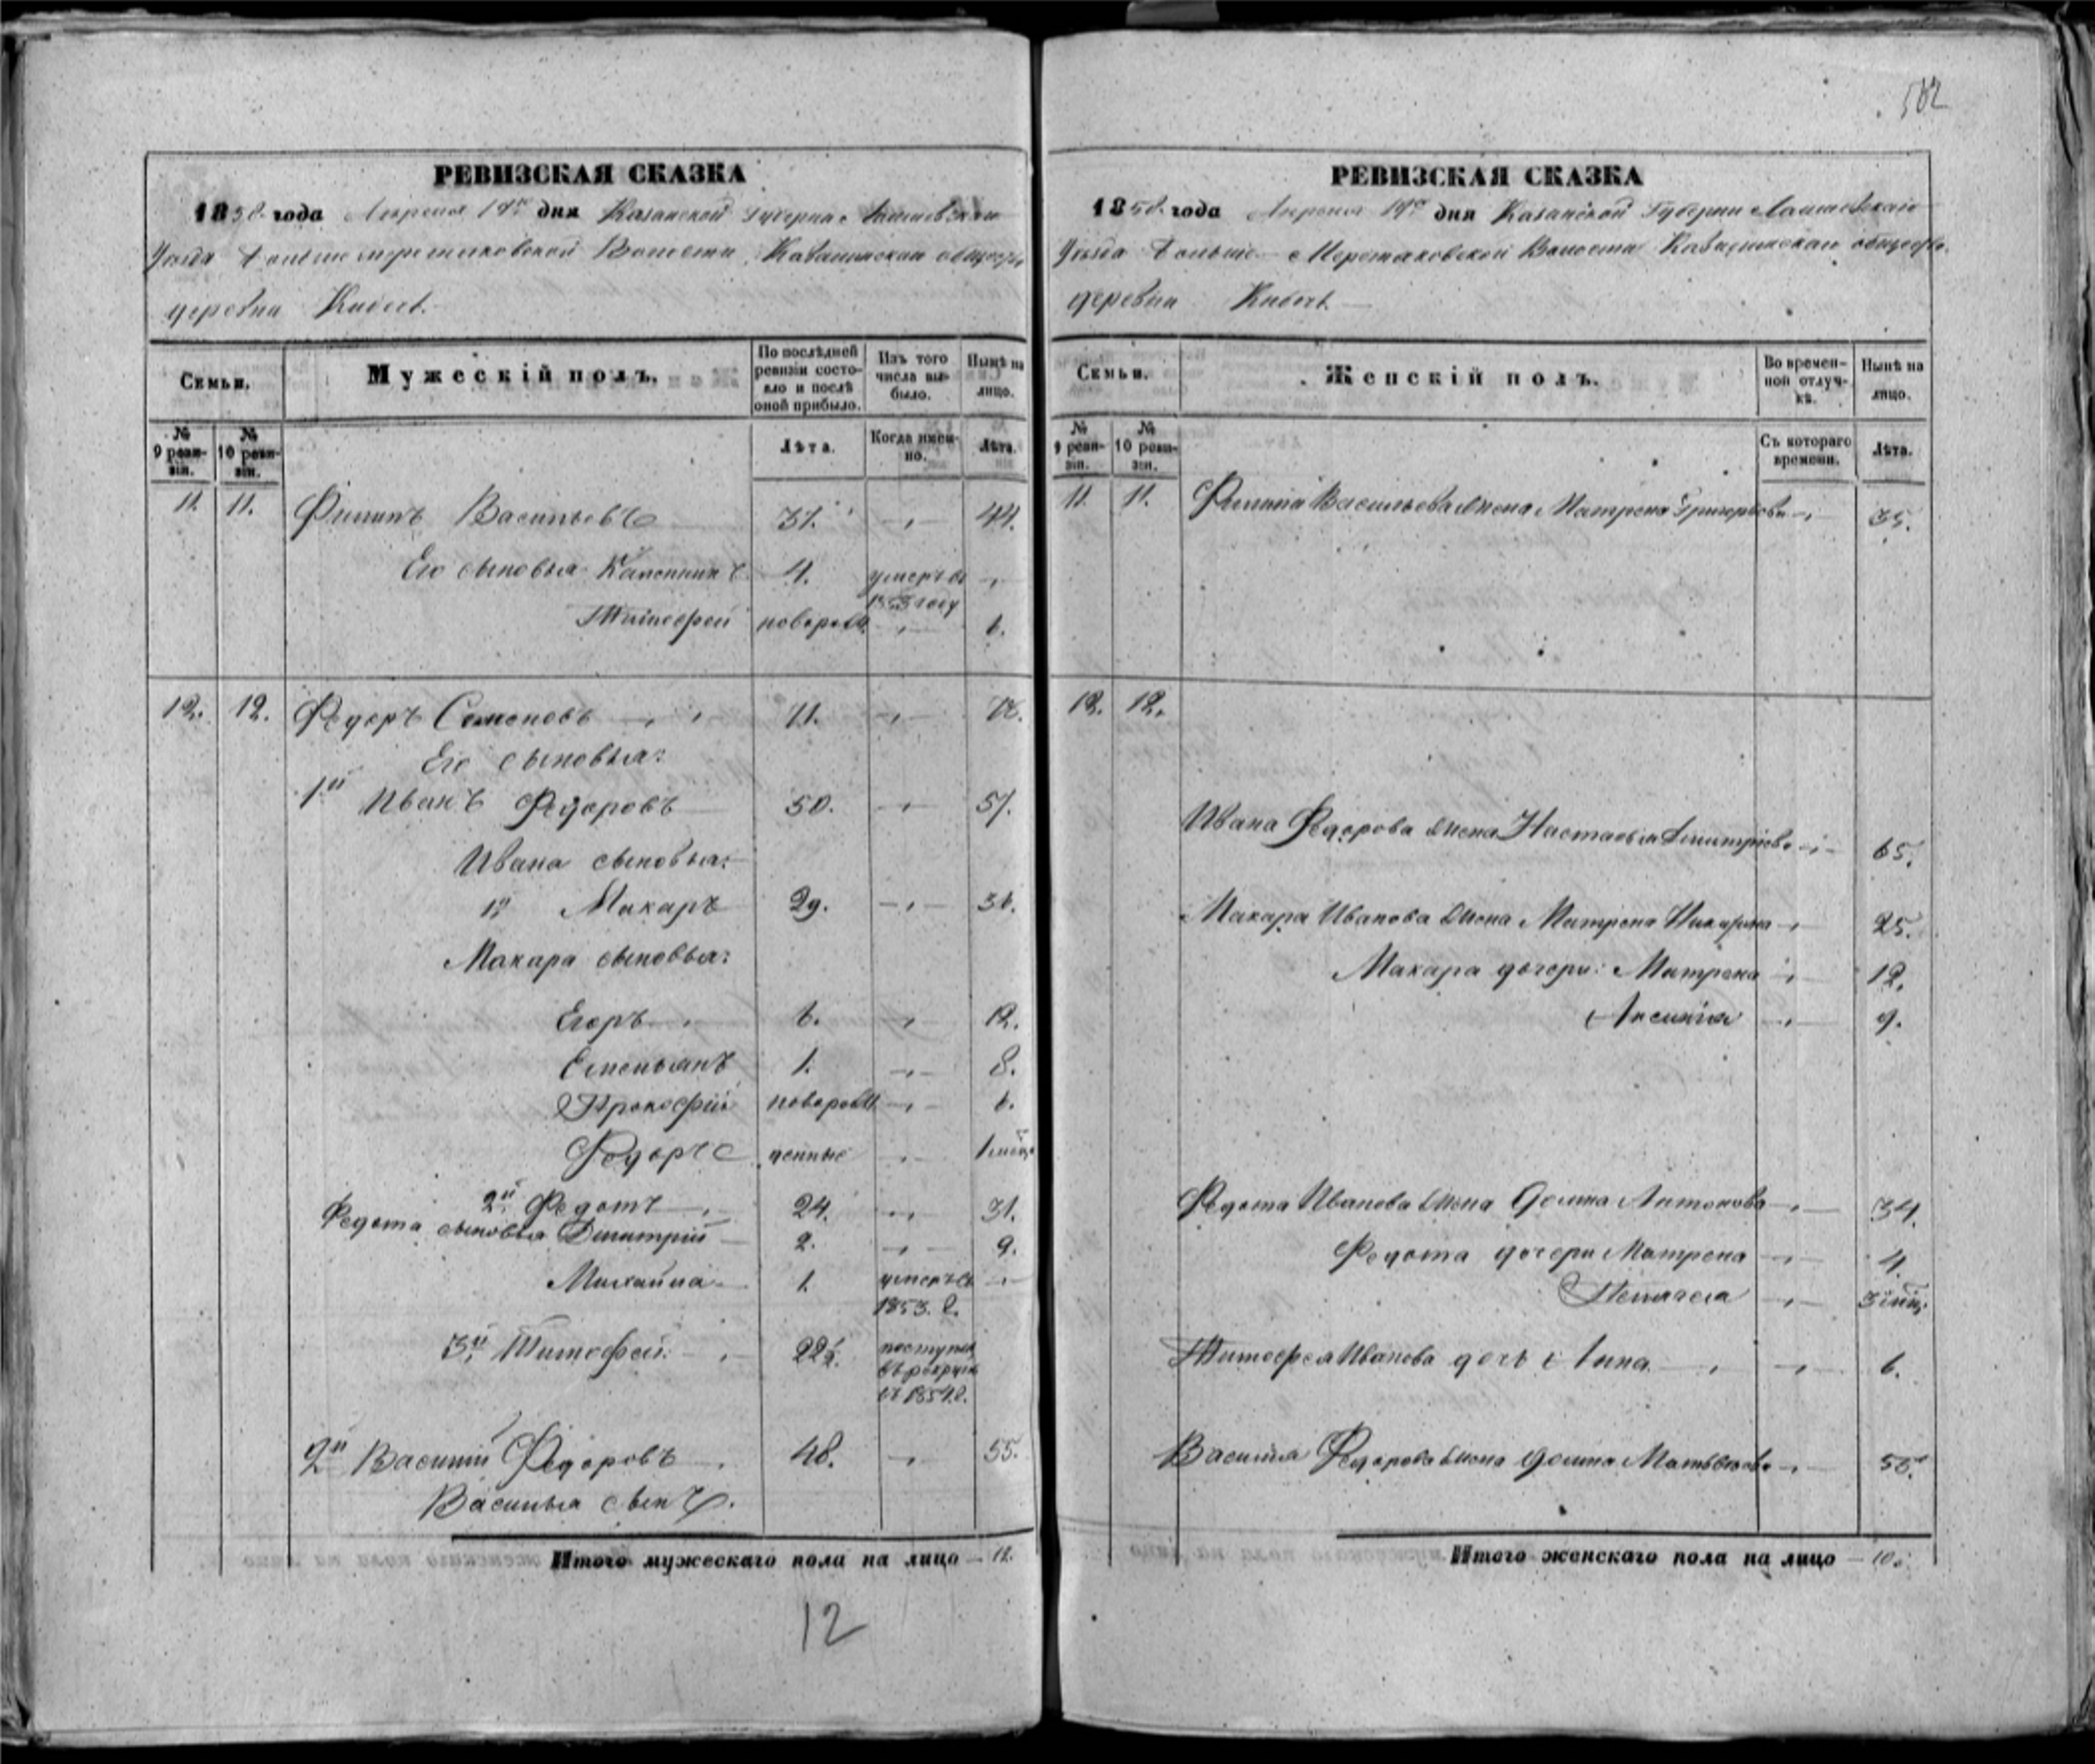 РЕВИЗСКАЯ СКАЗКА
1858 года Апреля 19го дня Казанской Губерніи Лаишевскаго
Уѣзда Больше Меретяковской Волости общества
деревни Кибечь
Семьи.
Мужескій полъ.
По послѣдней ревизіи состояло и послѣ оной прибыло.
Изъ того числа выбыло.
Нынѣ на лицо.
№ 9 ревизіи.
№ 10 ревизіи.
Лѣта.
Когда именно.
Лѣта.
11. 11. Филипъ Васильевъ 37. 44.
Его сыновья Калинникъ 4. умеръ въ 1853 году
Тимофей новорожд. 6.
12. 12. Федоръ Семеновъ 71. 78.
Его сыновья:
1й Иванъ Федоровъ 50. 57.
Ивана сыновья:
1й Макаръ 29. 36.
Макара сыновья:
Егоръ 6. 12.
Емельянъ 1. 8.
Прокофій новорожд. 6.
Федоръ денные 1 мѣсц.
2й Федотъ 24. 31.
Федота сыновья Дмитрій 2. 9.
Михайла 1. умеръ въ 1853. г.
3й Тимофей 22½. поступилъ въ рекруты въ 1854 г.
2й Василій Федоровъ 48. 55.
Василья сынъ.
Итого мужескаго пола на лицо — 12.
12
562
РЕВИЗСКАЯ СКАЗКА
1858 года Апреля 19го дня Казанской Губерніи Лаишевскаго
Уѣзда Больше Меретяковской Волости общества
деревни Кибечь
Семьи.
Женскій полъ.
Во временной отлучкѣ.
Нынѣ на лицо.
№ 9 ревизіи.
№ 10 ревизіи.
Съ котораго времени.
Лѣта.
11. 11. Филипа Васильева жена Матрена Григорьева 35.
12. 12.
Ивана Федорова жена Настасья Дмитріева 65.
Макара Иванова жена Матрена 25.
Макара дочери: Матрена 12.
Аксинія 9.
Федота Иванова жена Антонова 34.
Федота дочери Матрена 4.
Пелагея 3 мѣс:
Тимофея Иванова дочь Анна 6.
Василья Федорова жена Матвѣева 58.
Итого женскаго пола на лицо — 10.